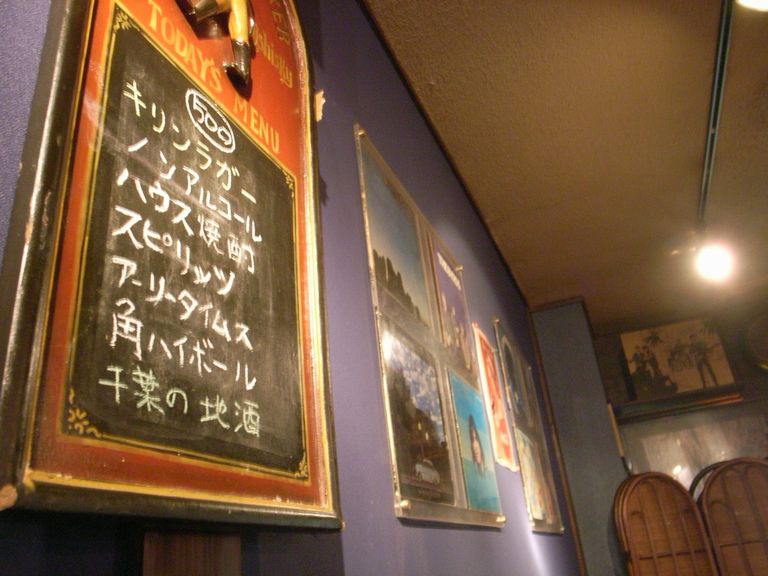 TODAY'S MENU
500
キリンラガー
ノンアルコール
ハウス焼酎
スピリッツ
アーリータイムス
角ハイボール
千葉の地酒